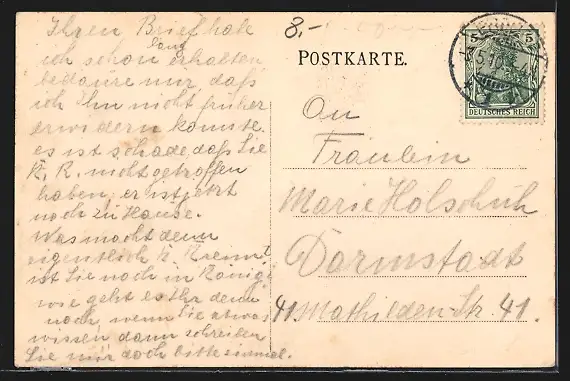 Ihren Brief habe
ich schon lang erhalten,
bedaure nur, daß
ich ihn nicht früher
erwidern konnte.
es ist schade daß Sie
K. R. nicht getroffen
haben, er ist jetzt
noch zu Hause.
Was macht denn
eigentlich K.
ist Sie noch in König
wie geht es Ihr denn
noch, wenn Sie etwas
wissen dann schreiben
Sie mir doch bitte einmal.
8,-
POSTKARTE.
5 5
DEUTSCHES REICH
An
Fräulein
Marie Holschuh
Darmstadt
41. Mathilden-Str. 41.